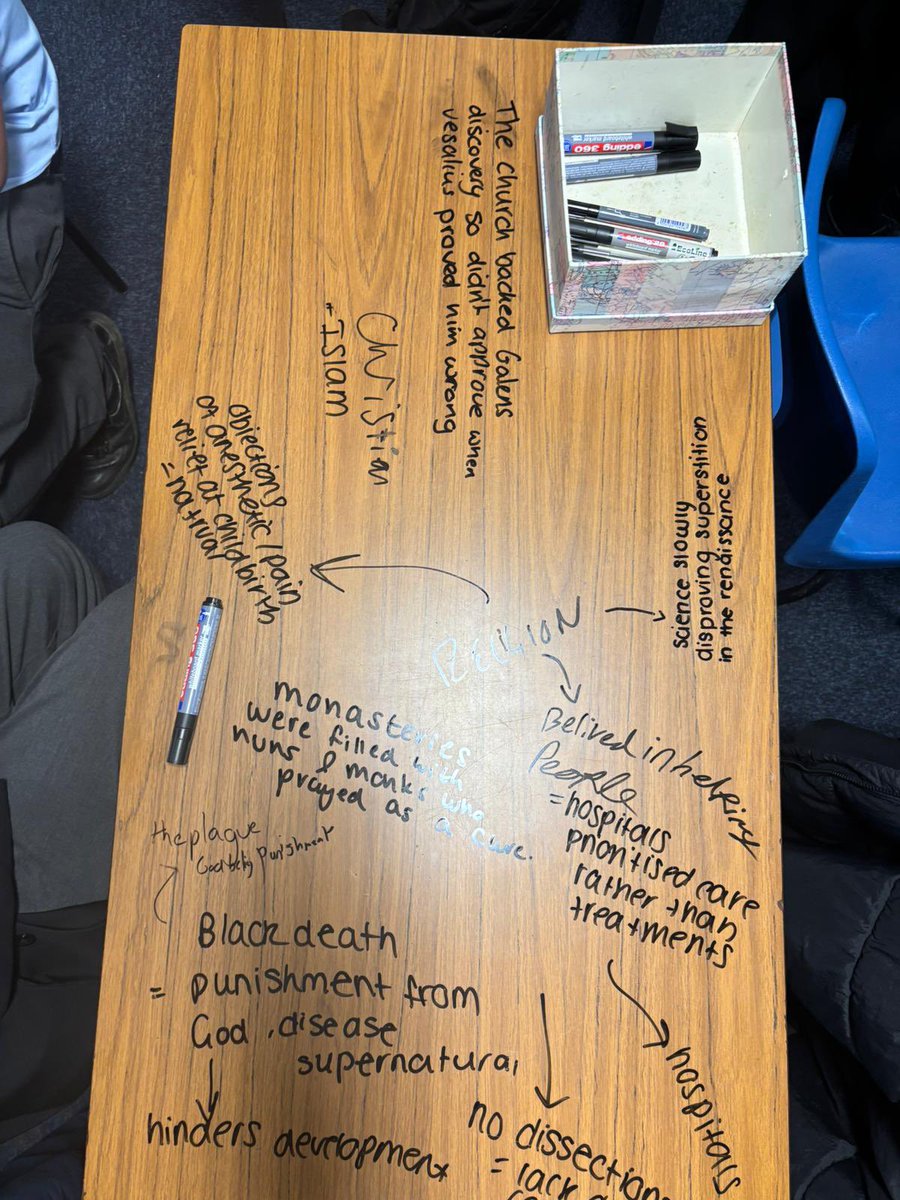 The church backed Galens
discovery so didn't approve when
vesalius proved him wrong
Christian
- Islam
objections
of anesthetic/pain
relief at childbirth
= natrual
science slowly
disproving superstition
in the renaissance
RELIGION
monasteries
were filled with
nuns & monks who
prayed as a cure.
Belived in helping
People
= hospitals
prioritised care
rather than
treatments
hospitals
the plague
God being Punishment
Black death
= punishment from
God, disease
supernatural
hinders development
no dissections
= lack
edding 360